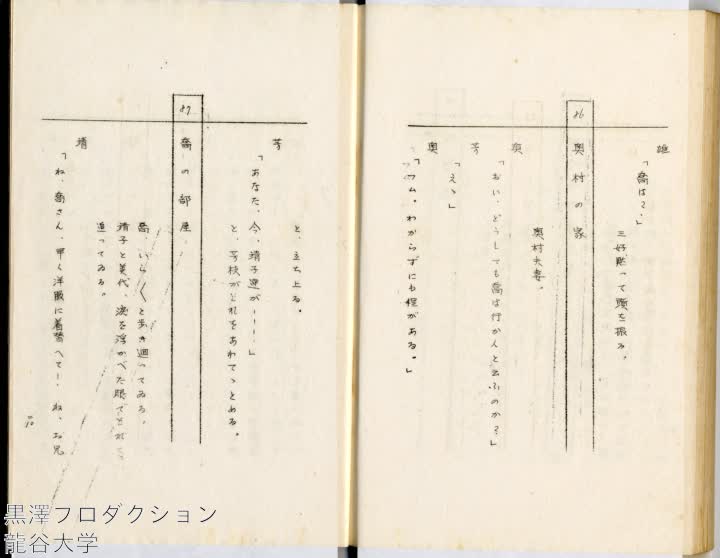 雄
「喬は?」
三好黙って頭を振る。
86
奥村の家
奥村夫妻。
奥
「おい、どうしても喬は行かんと云ふのか?」
芳
「えゝ」
奥
「フム。わからずにも程がある。」
と、立ち上る。
芳
「あなた、今、靖子達が———」
と、芳枝がそれをあわてゝとめる。
87
喬の部屋
喬、いら〳〵と歩き廻ってゐる。
靖子と美代、涙を浮かべた眼でそれを
追ってゐる。
靖
「ね、喬さん、早く洋服に着替へて— ね、お兄
黒澤プロダクション
龍谷大学